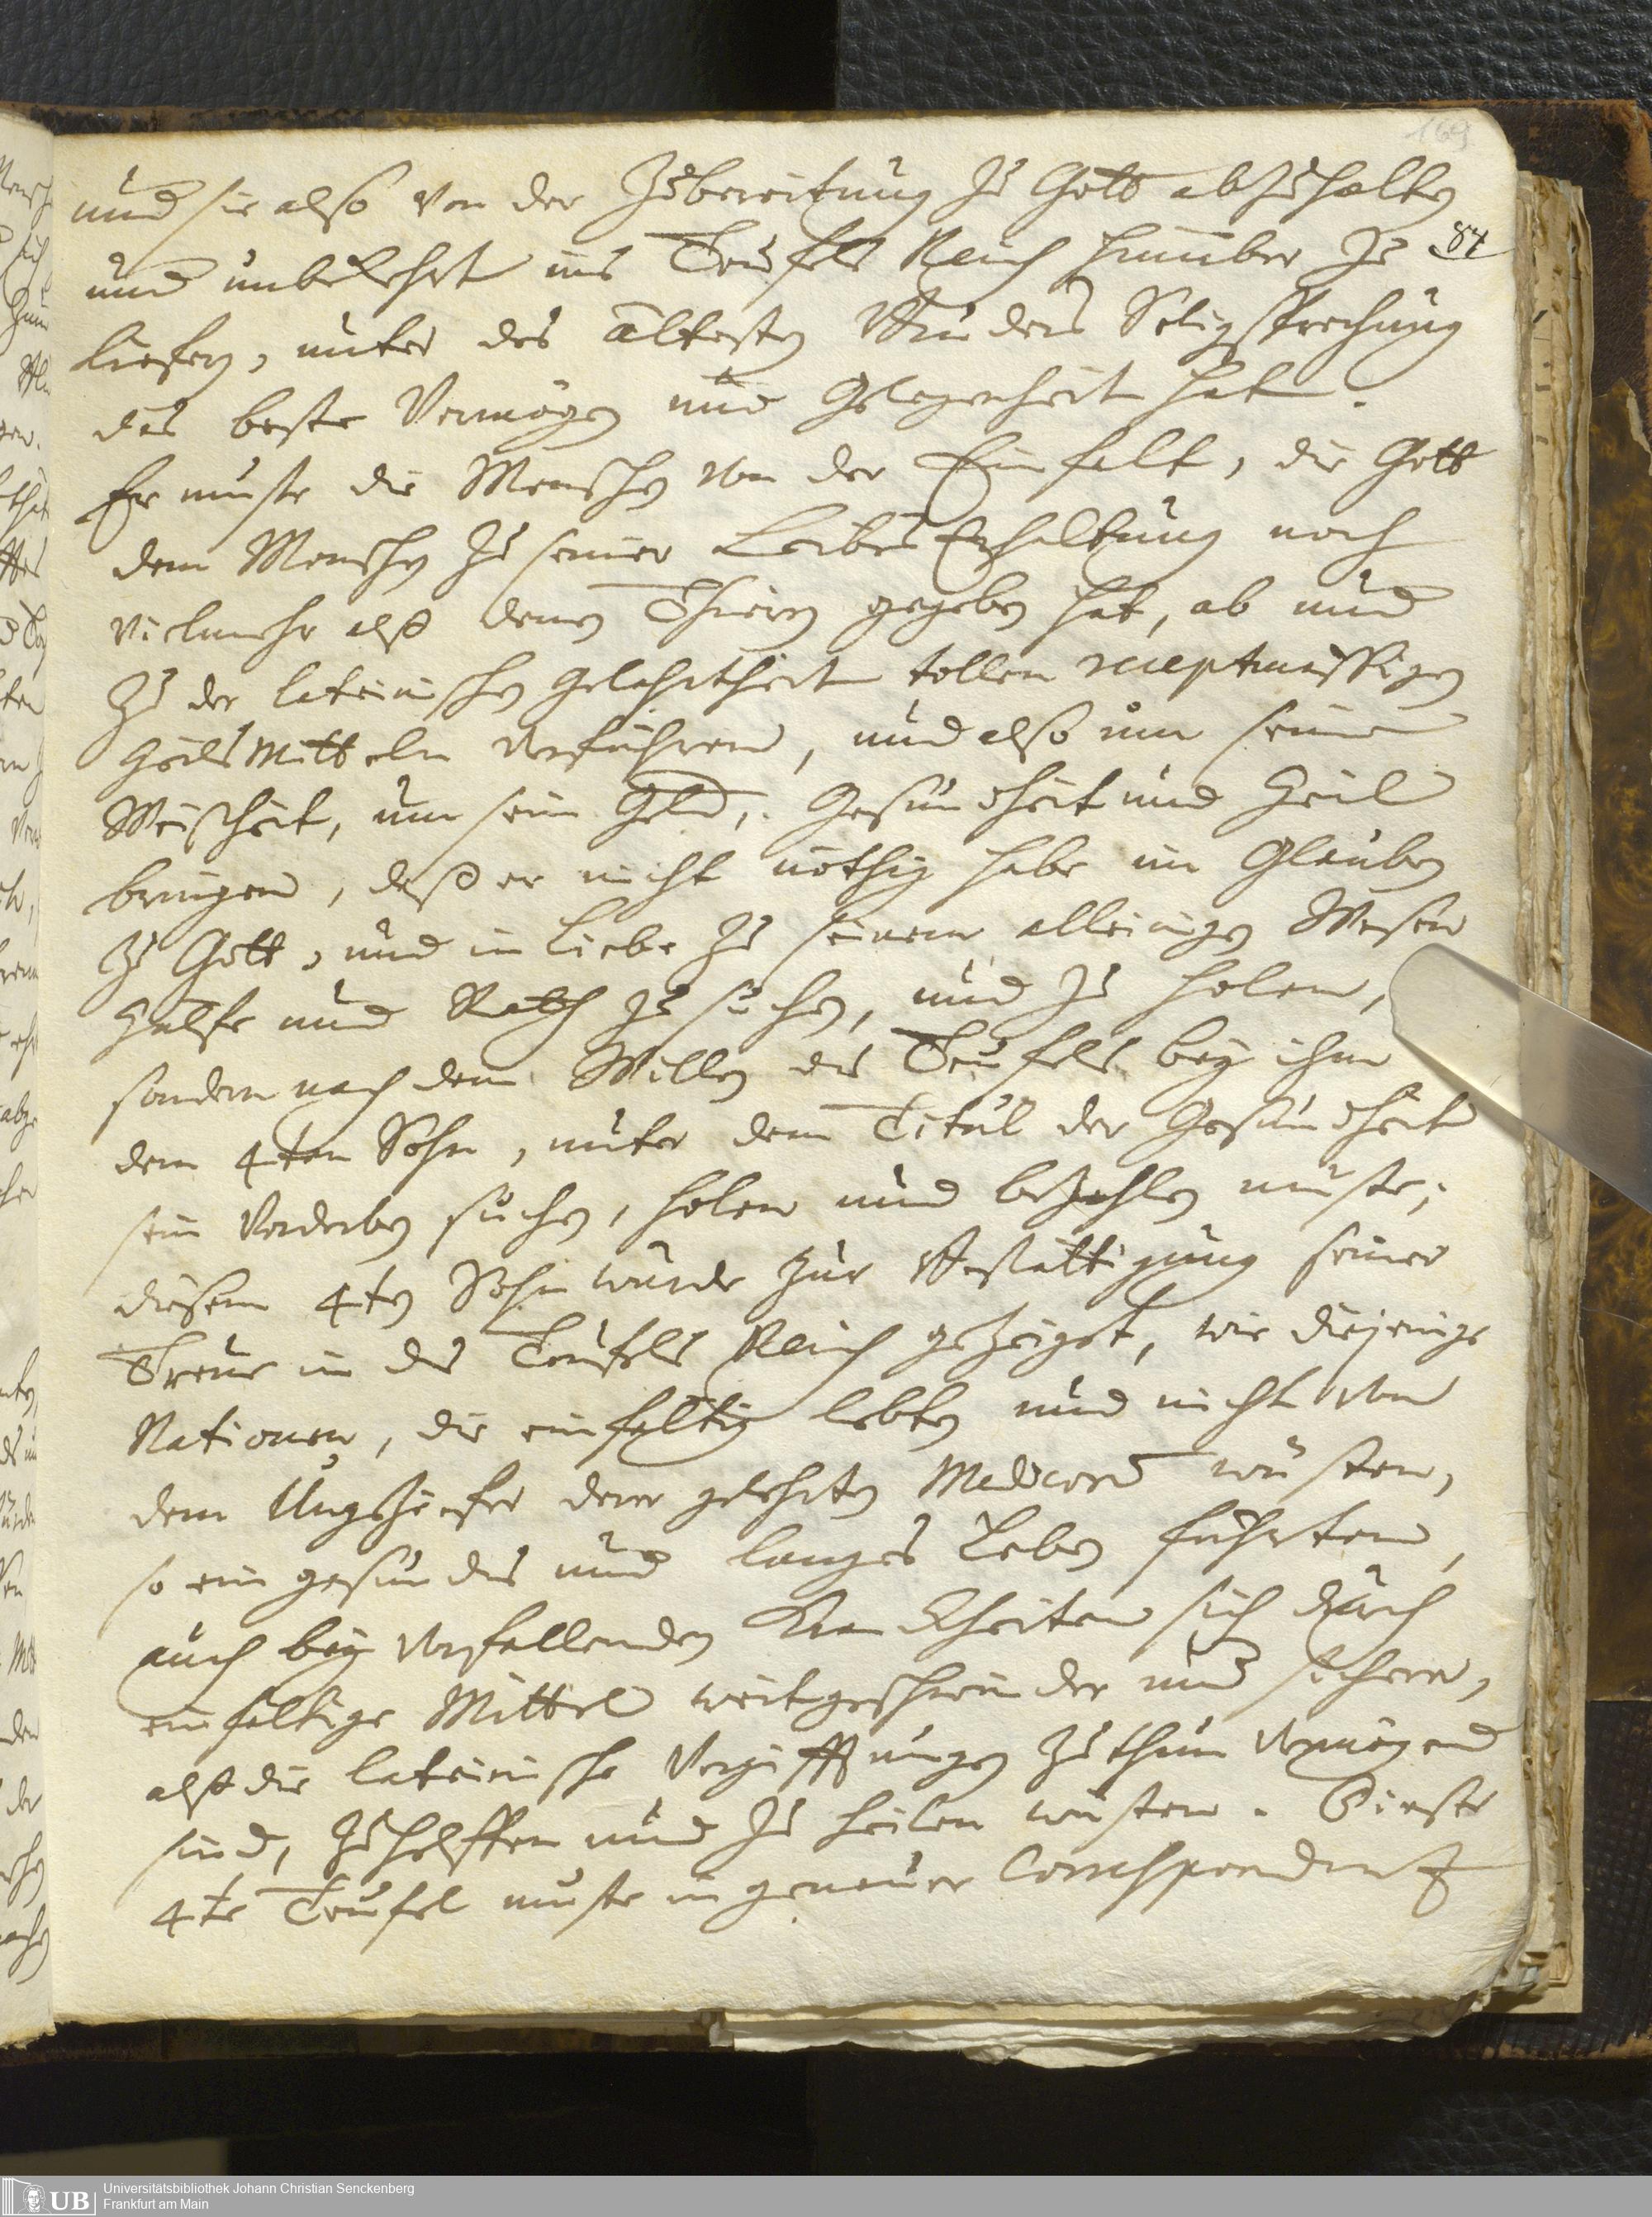 169
und sie also von der Zubereitung zu Gott abzuhalten
84
und unbekehrt ins Teufels Reich hinüber zu
liefern, unter des ältesten Bruders Seligsprechung
das beste Vermögen und Gelegenheit hat.
Er muste die Menschen von der Einfalt, die Gott
dem Menschen zu seiner Leibes Erhaltung noch
vielmehr alß denen Thieren gegeben hat, ab und
zu der lateinischen Gelahrtheit tollen receptmässigen
Heils Mitteln verführen, und also um seine
Weißheit, um sein Geld, Gesundheit und Heil
bringen, daß er nicht nöthig habe im Glauben
zu Gott, und in Liebe zu seinem alleinigen Wesen
Hülfe und Rath zu suchen, und zu holen,
sondern nach dem Willen des Teufels bey ihm
dem 4ten Sohn, unter dem Titul der Gesundheit
sein Verderben suchen, holen und bezahlen muste;
diesem 4ten Sohn wurde zur Bestättigung seiner
Treue in des Teufels Reich gezeiget, wie diejenige
Nationen, die einfältig lebten und nicht von
dem Ungeziefer derer gelehrten Medicorum wusten,
so ein gesundes und langes Leben führten,
auch bey vorfallenden Kranckheiten sich durch
einfältige Mittel weit geschwinder und sicherer,
alß die lateinische Vergifftungen zu thun vermögend
sind, zu helffen und zu heilen wusten. Dieser
4te Teufel muste in genauer Correspondentz
UB
Universitätsbibliothek Johann Christian Senckenberg
Frankfurt am Main